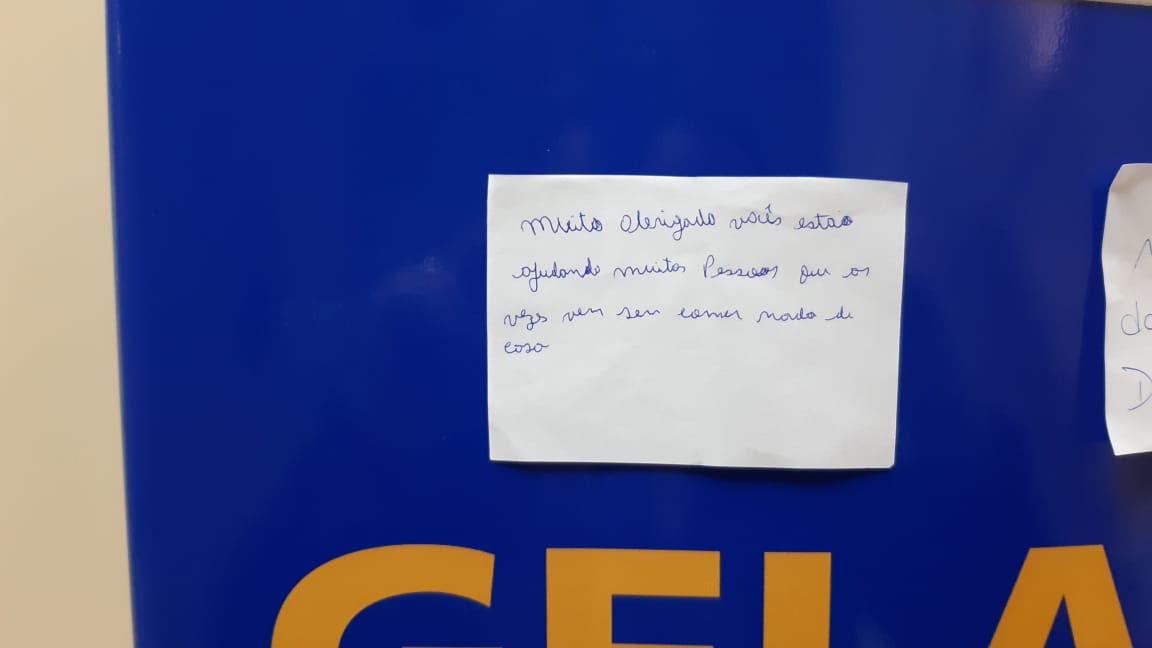 Muito obrigado vocês estão
ajudando muitas Pessoas que as
vezes vem sem comer nada de
casa
N
do
D
GELA